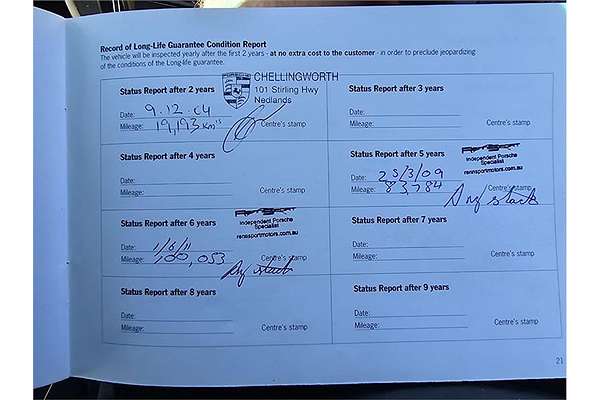 Record of Long-Life Guarantee Condition Report
The vehicle will be inspected yearly after the first 2 years - at no extra cost to the customer - in order to preclude jeopardizing
of the conditions of the Long-life guarantee.
Status Report after 2 years
CHELLINGWORTH
101 Stirling Hwy
Nedlands
Date: 9.12.04
Mileage: 19,193 kms
Centre's stamp
Status Report after 3 years
Date:
Mileage:
Centre's stamp
Status Report after 4 years
Date:
Mileage:
Centre's stamp
Status Report after 5 years
Independent Porsche
Specialist
rennsportmotors.com.au
Date: 25/3/09
Mileage: 83,784
Centre's stamp
Status Report after 6 years
Independent Porsche
Specialist
rennsportmotors.com.au
Date: 1/6/11
Mileage: 100,053
Centre's stamp
Status Report after 7 years
Date:
Mileage:
Centre's stamp
Status Report after 8 years
Date:
Mileage:
Centre's stamp
Status Report after 9 years
Date:
Mileage:
Centre's stamp
21